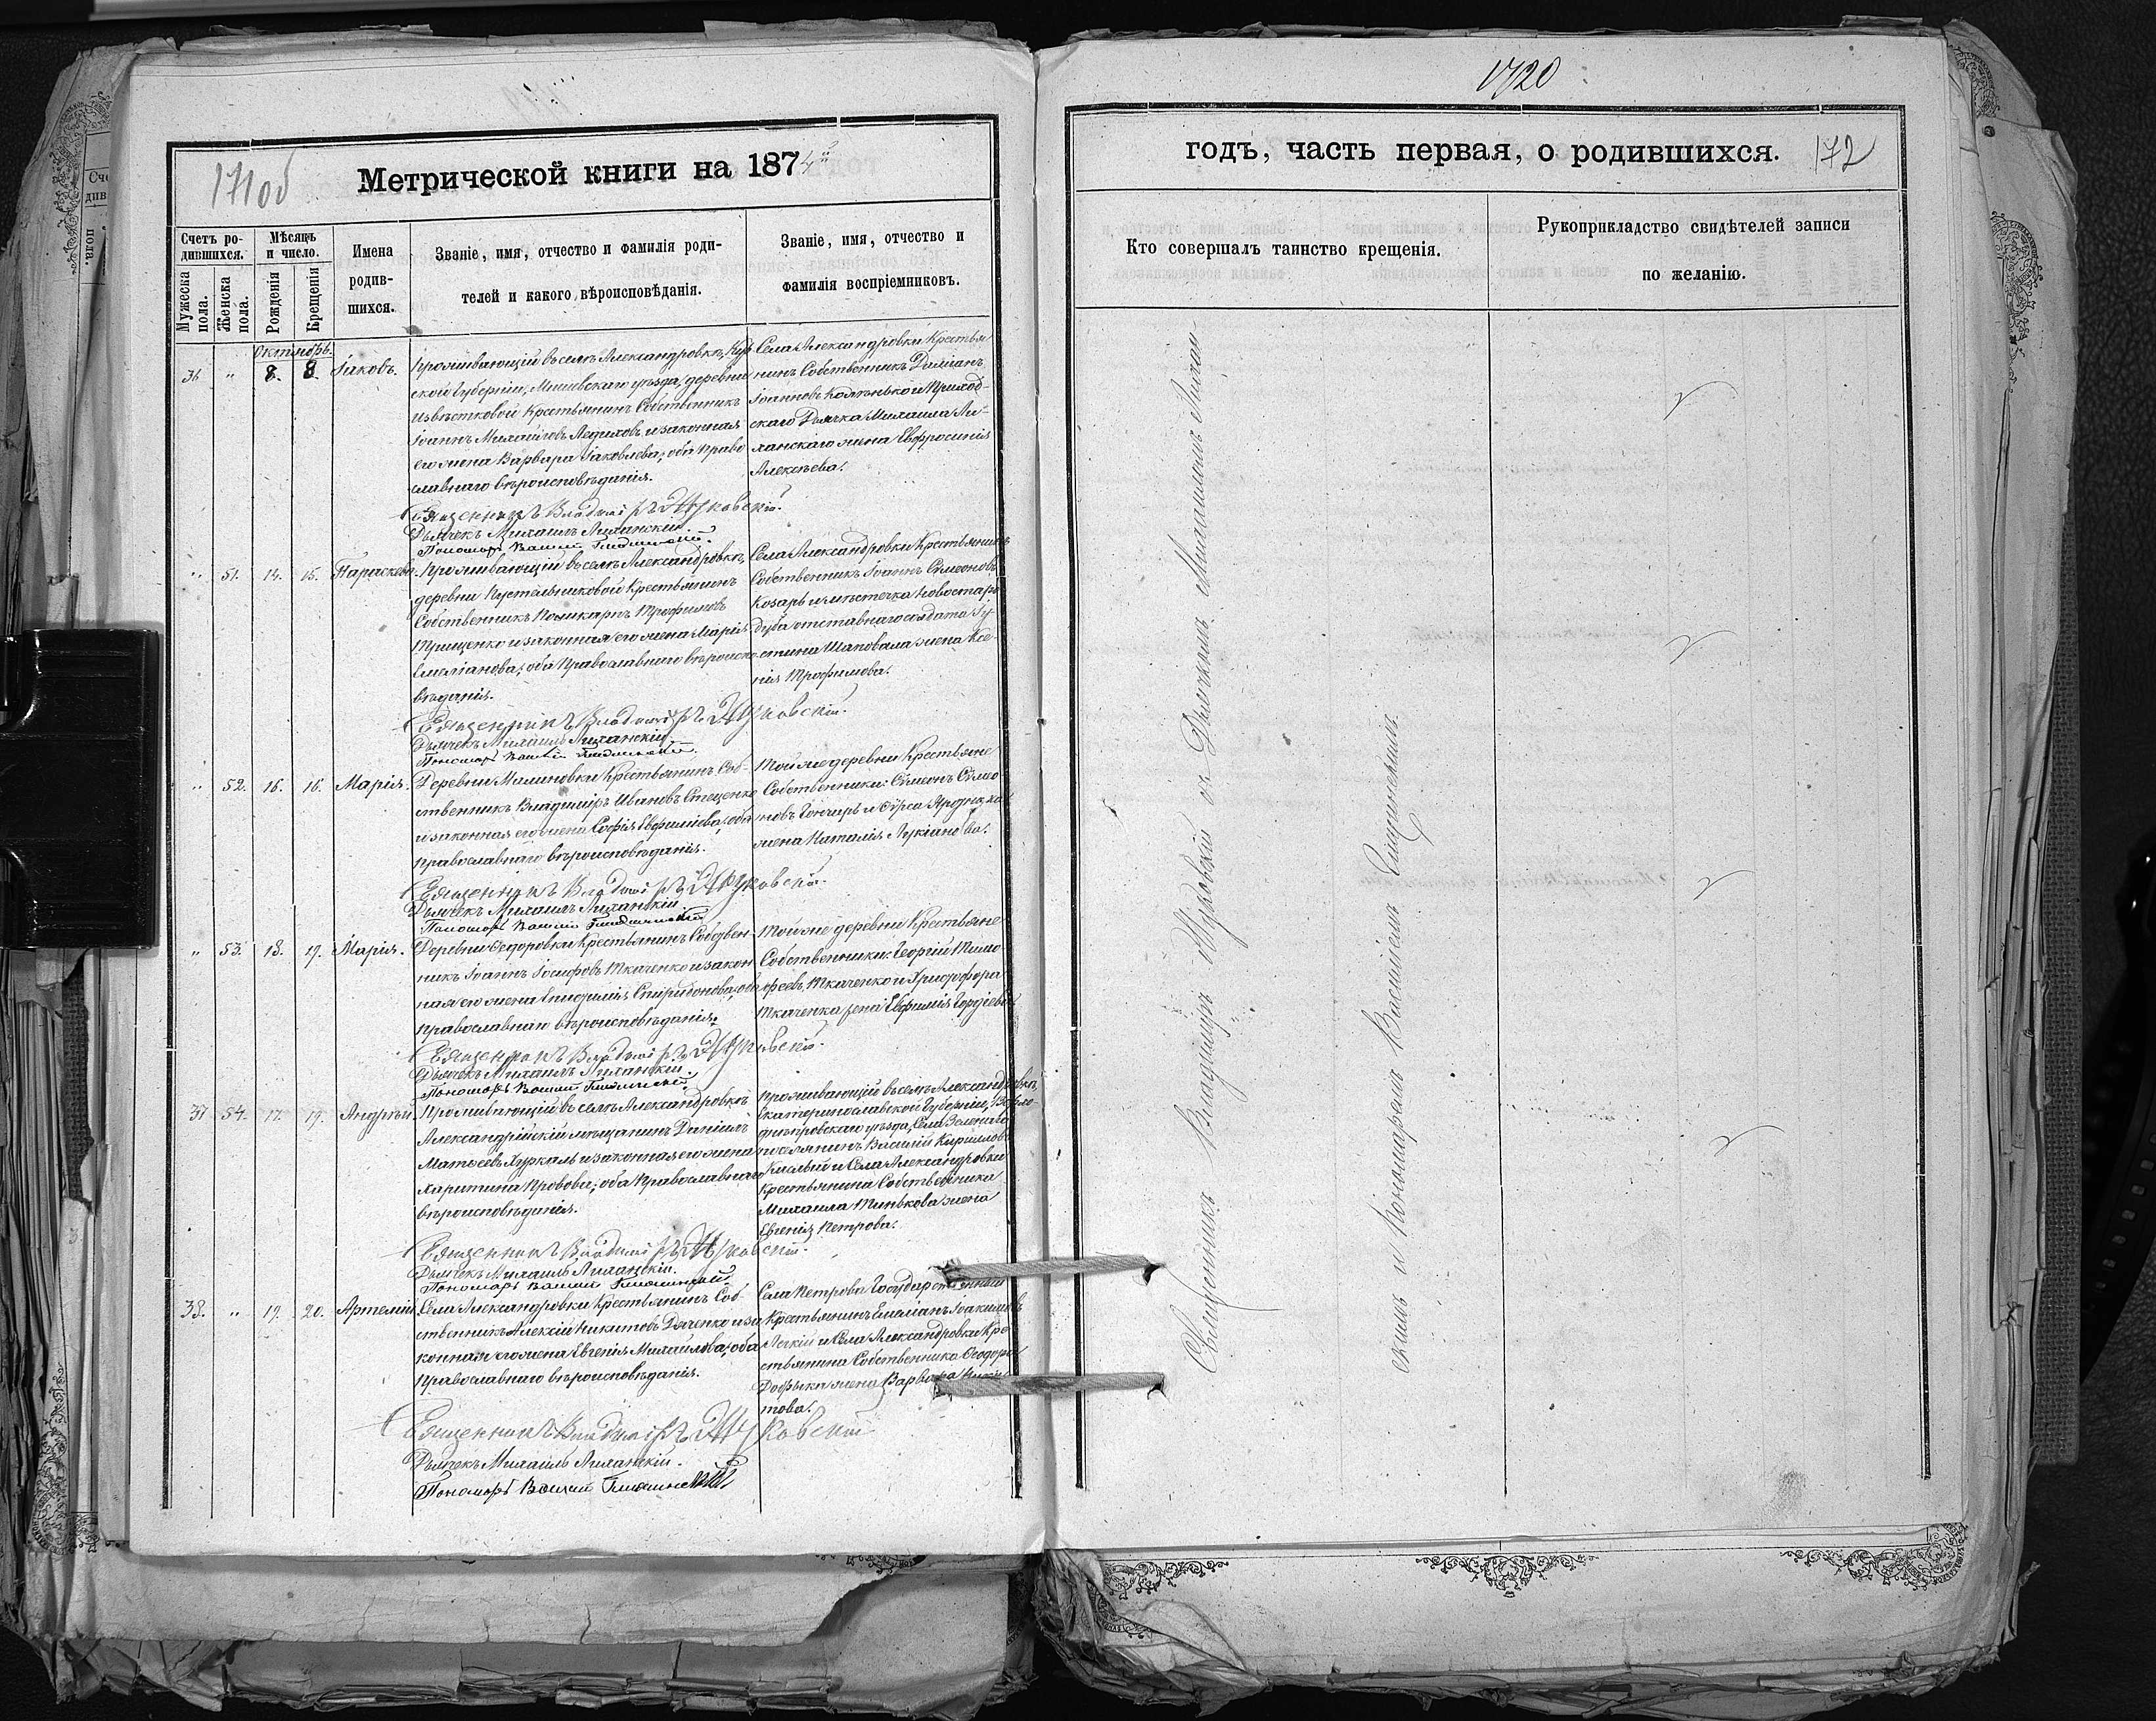 171об
Метрической книги на 1874й
Счетъ ро-
дившихся.
Мѣсяцъ
и число.
Мужеска
пола.
Женска
пола.
Рожденія
Крещенія
Имена
родив-
шихся.
Званіе, имя, отчество и фамилія роди-
телей и какого вѣроисповѣданія.
Званіе, имя, отчество и
фамилія воспріемниковъ.
Октябрь.
36 " 8. 8. Іаковъ.
Проживающій въ селѣ Александровкѣ, Кур
ской Губерніи, уѣзда, деревни
Крестьянинъ Собственникъ
Іоаннъ Михайловъ и законная
его жена Варвара Іаковлева; оба Право
славнаго вѣроисповѣданія.
Села Александровки Крестья
нинъ Собственникъ Даміанъ
Іоанновъ и Приход-
скаго Дьячка Михаила Ли-
ханскаго жена Евфросинія
Алексѣева.
Священникъ Владиміръ Жуковскій.
Дьячекъ Михаилъ Лиханскій.
Пономарь Василій
" 51. 14. 15. Параскева.
Проживающій въ селѣ Александровкѣ,
деревни Пустельниковой Крестьянинъ
Собственникъ Поликарпъ Трофимовъ
Грищенко и законная его жена Марія
Емеліанова; оба Православнаго вѣроиспо
вѣданія.
Села Александровки Крестьянинъ
Собственникъ Іоаннъ Сѵмеоновъ
Козарь и мѣстечка Новостаро
дуба отставнаго солдата Іу-
стина Шаповала жена Ксе-
нія Трофимова.
Священникъ Владиміръ Жуковскій.
Дьячекъ Михаилъ Лиханскій.
Пономарь Василій
" 52. 16. 16. Марія.
Деревни Малиновки Крестьянинъ Соб-
ственникъ Владиміръ Ивановъ Стеценко
и законная его жена Софія Евфиміева; оба
Православнаго вѣроисповѣданія.
Той же деревни Крестьяне
Собственники: Сѵмеонъ Сѵмео
новъ Гончаръ и
жена Наталія Лукіанова.
Священникъ Владиміръ Жуковскій.
Дьячекъ Михаилъ Лиханскій
Пономарь Василій
" 53. 18. 19. Марія.
Деревни Федоровки Крестьянинъ Собствен
никъ Іоаннъ Іосифовъ Ткаченко и закон
ная его жена Спиридонова; оба
Православнаго вѣроисповѣданія.
Той же деревни Крестьяне
Собственники: Георгій Тимо
феевъ Ткаченко и Христофора
Ткаченка жена Евфимія Гордіева.
Священникъ Владиміръ Жуковскій.
Дьячекъ Михаилъ Лиханскій.
Пономарь Василій
37 54. 17. 19. Андрей.
Проживающій въ селѣ Александровкѣ
Александрійскій мѣщанинъ Даніилъ
и законная его жена
Харитина Провова; оба Православнаго
вѣроисповѣданія.
Проживающій въ селѣ Александровкѣ,
Екатеринославской Губерніи, Верхо-
днѣпровскаго уѣзда, Села
поселянинъ Василій Кирилловъ
Кислый и Села Александровки
Крестьянина Собственника
Михаила Минькова жена
Евгенія Петрова.
Священникъ Владиміръ Жуковскій.
Дьячекъ Михаилъ Лиханскій.
Пономарь Василій
38. " 19. 20. Артемій.
Села Александровки Крестьянинъ Соб-
ственникъ Алексій Никитовъ Дяченко и за
конная его жена Евгенія Михайлова; оба
Православнаго вѣроисповѣданія.
Села Петрова Государственный
Крестьянинъ Емеліанъ Іоакимовъ
Легкій и Села Александровки Кре
стьянина Собственника Ѳеодора
жена Варвара Ники
това.
Священникъ Владиміръ Жуковскій
Дьячекъ Михаилъ Лиханскій.
Пономарь Василій
1720
годъ, часть первая, о родившихся.
172
Кто совершалъ таинство крещенія.
Рукоприкладство свидѣтелей записи
по желанію.
Священникъ Владиміръ Жуковскій съ Дьячкомъ Михаиломъ Лихан
скимъ и Пономаремъ Василіемъ